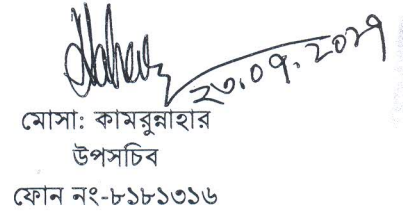 ২৩.০৭.২০১৭
মোসা: কামরুন্নাহার
উপসচিব
ফোন নং-৮১৮১৩১৬